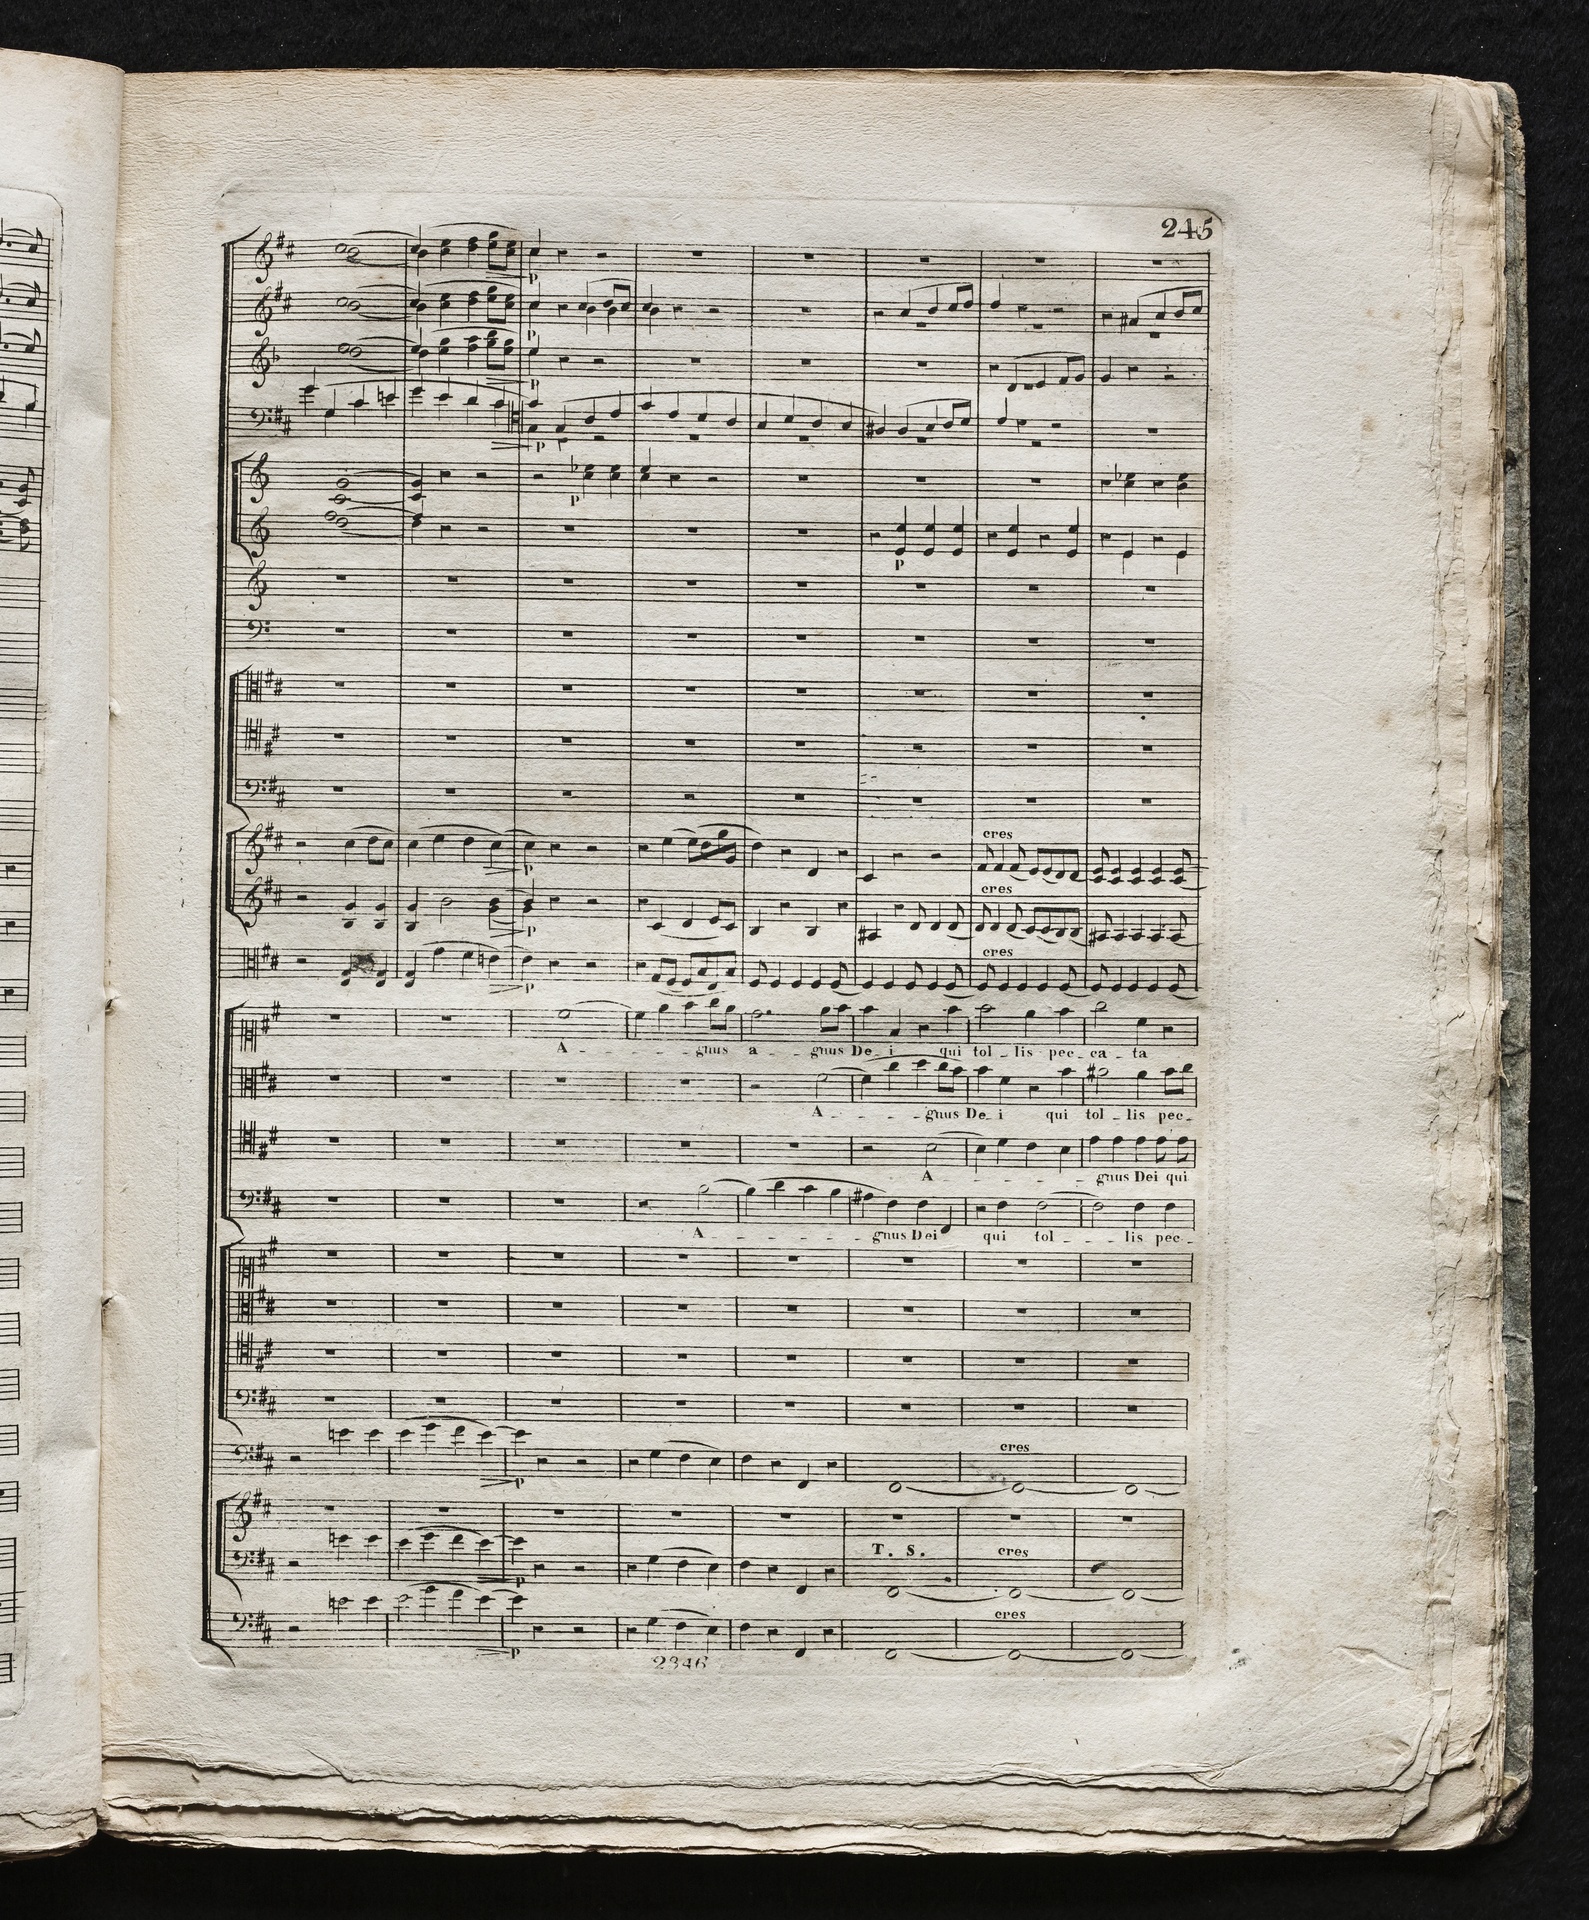 245
p
p
p
p
p
p
cres
p
cres
p
cres
p
A - - - - gnus a - - gnus De - i qui tol - lis pec - ca - ta
A - - - - gnus De - i qui tol - lis pec -
A - - - - - gnus Dei qui
A - - - - - - gnus Dei qui tol - - - lis pec -
cres
p
T. S. cres
p
cres
p
2346